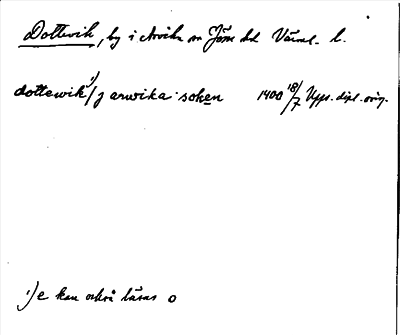 Dottevik, by i Arvika sn Jösse hd Värml. l.
dottewik¹⁾ j arwika soken 1400 18/7 Upps. dipl. orig.
¹⁾ e kan också läsas o